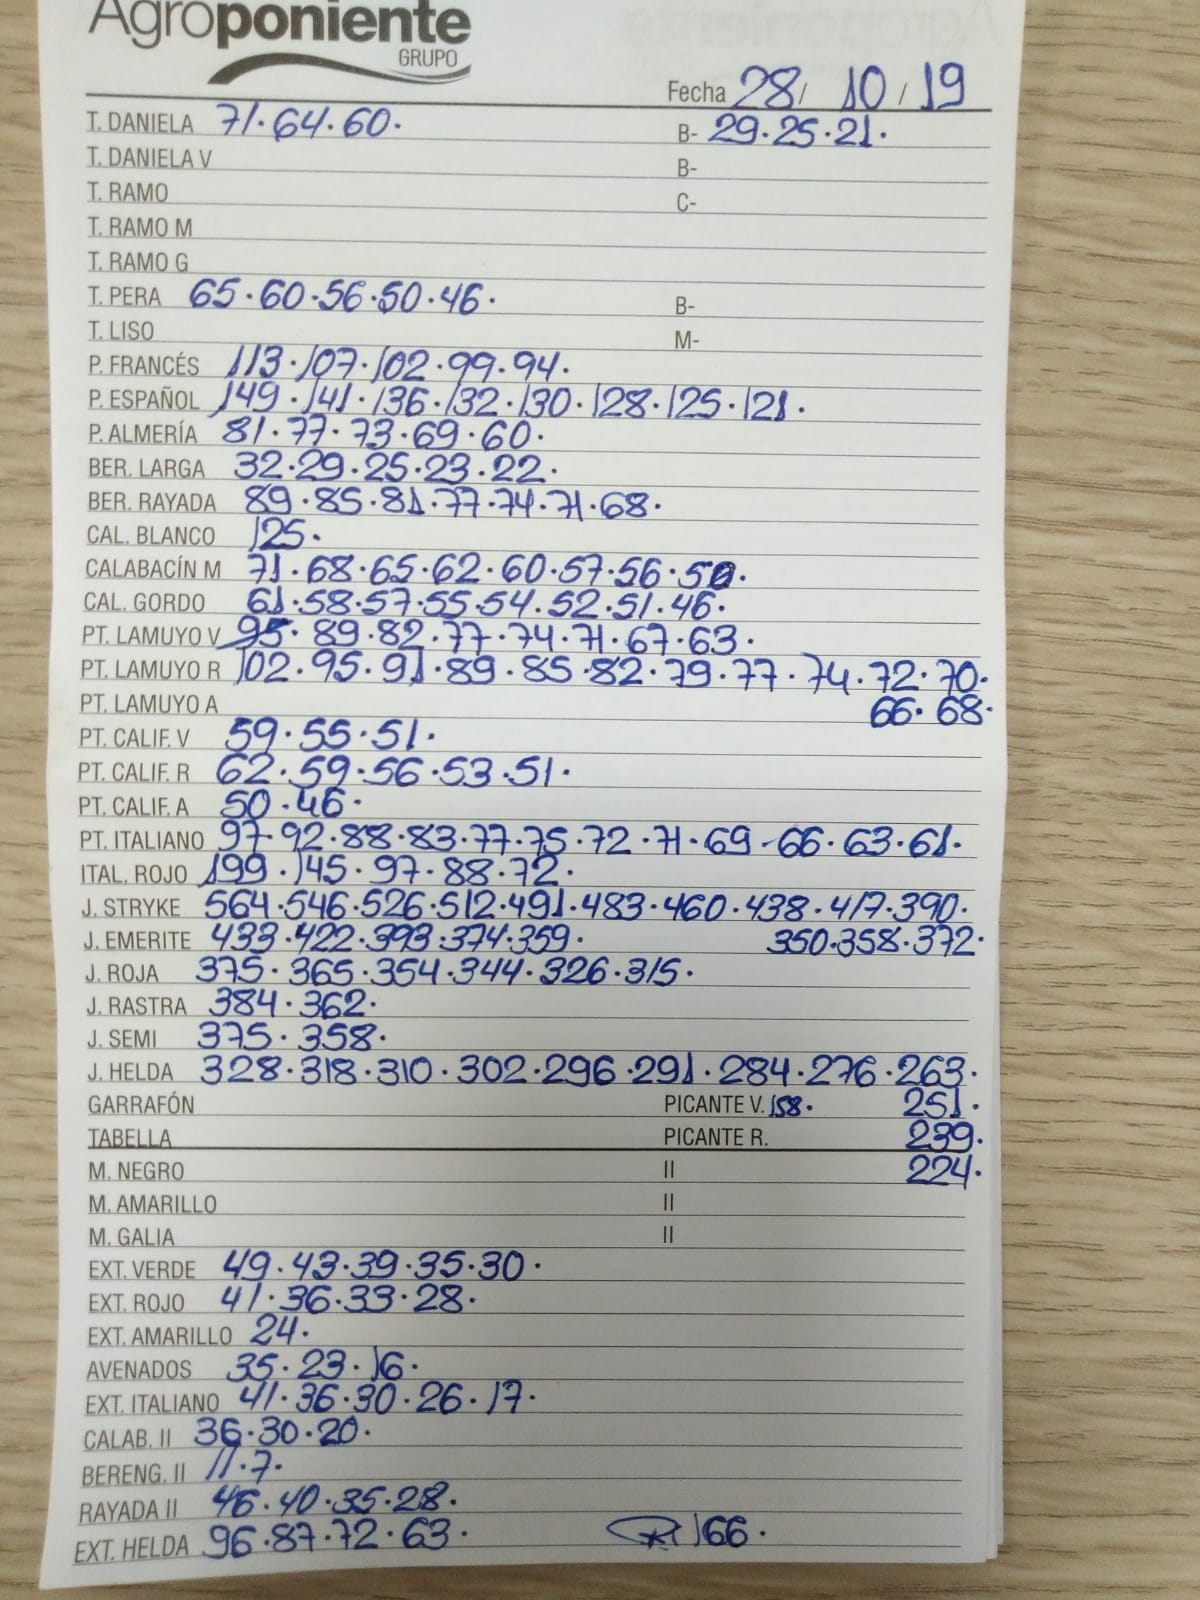 Agroponiente
GRUPO
Fecha 28/ 10 / 19
T. DANIELA 71·64·60· B- 29·25·21·
T. DANIELA V B-
T. RAMO C-
T. RAMO M
T. RAMO G
T. PERA 65·60·56·50·46· B-
T. LISO M-
P. FRANCÉS 113·107·102·99·94·
P. ESPAÑOL 149·141·136·132·130·128·125·121·
P. ALMERÍA 81·77·73·69·60·
BER. LARGA 32·29·25·23·22·
BER. RAYADA 89·85·81·77·74·71·68·
CAL. BLANCO 125·
CALABACÍN M 71·68·65·62·60·57·56·50·
CAL. GORDO 61·58·57·55·54·52·51·46·
PT. LAMUYO V 95·89·82·77·74·71·67·63·
PT. LAMUYO R 102·95·91·89·85·82·79·77·74·72·70·
PT. LAMUYO A 66·68·
PT. CALIF. V 59·55·51·
PT. CALIF. R 62·59·56·53·51·
PT. CALIF. A 50·46·
PT. ITALIANO 97·92·88·83·77·75·72·71·69-66·63·61·
ITAL. ROJO 199·145·97·88·72·
J. STRYKE 564·546·526·512·491·483·460·438·417·390·
J. EMERITE 433·422·393·374·359· 350·358·372·
J. ROJA 375·365·354·344·326·315·
J. RASTRA 384·362·
J. SEMI 375·358·
J. HELDA 328·318·310·302·296·291·284·276·263·
GARRAFÓN PICANTE V. 158· 251·
TABELLA PICANTE R. 239·
M. NEGRO II 224·
M. AMARILLO II
M. GALIA II
EXT. VERDE 49·43·39·35·30·
EXT. ROJO 41·36·33·28·
EXT. AMARILLO 24·
AVENADOS 35·23·16·
EXT. ITALIANO 41·36·30·26·17·
CALAB. II 36·30·20·
BERENG. II 11·7·
RAYADA II 46·40·35·28·
EXT. HELDA 96·87·72·63· 166·